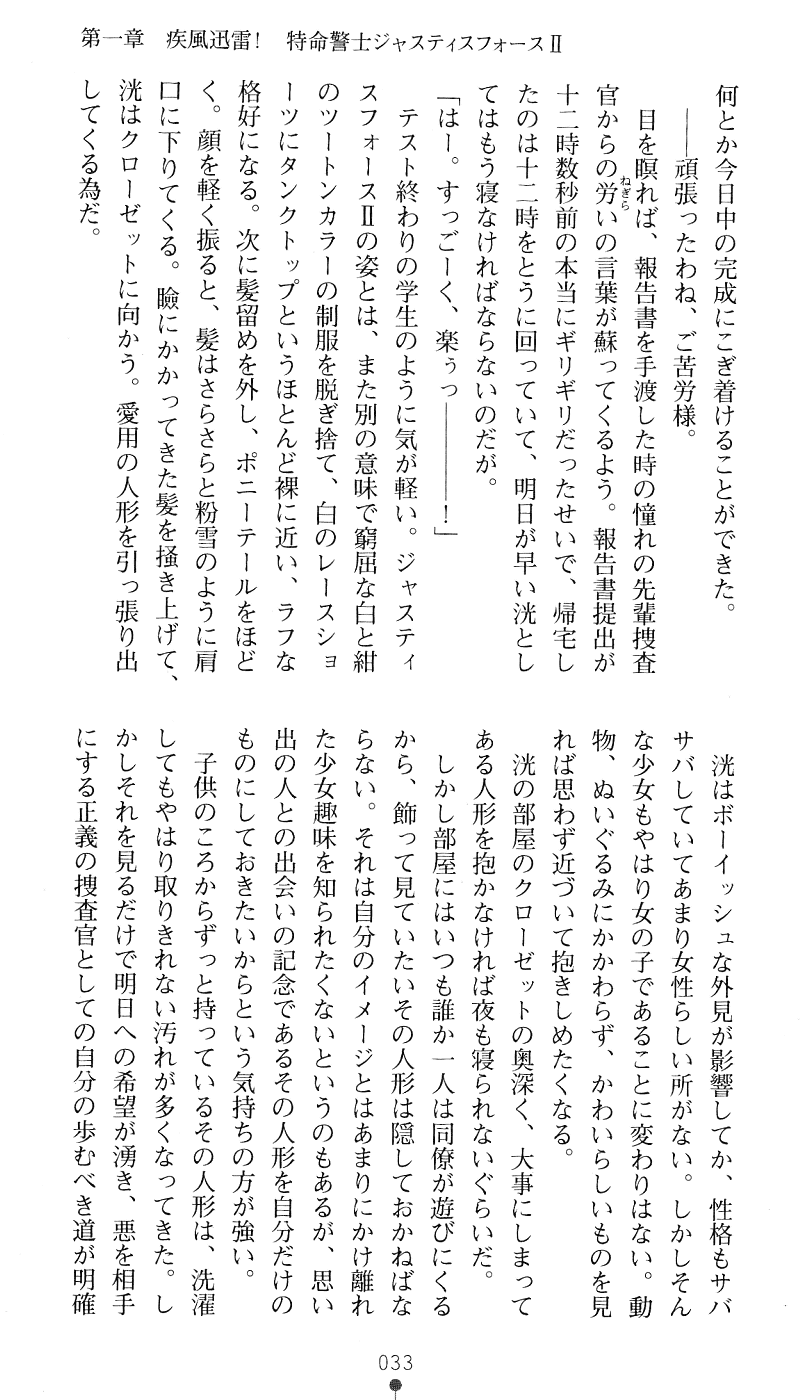 第一章　疾風迅雷！　特命警士ジャスティスフォースⅡ
何とか今日中の完成にこぎ着けることができた。
――頑張ったわね、ご苦労様。
目を瞑れば、報告書を手渡した時の憧れの先輩捜査
官からの労いの言葉が蘇ってくるよう。報告書提出が
ねぎら
十二時数秒前の本当にギリギリだったせいで、帰宅し
たのは十二時をとうに回っていて、明日が早い洸とし
てはもう寝なければならないのだが。
「はー。すっごーく、楽ぅっ――――！」
テスト終わりの学生のように気が軽い。ジャスティ
スフォースⅡの姿とは、また別の意味で窮屈な白と紺
のツートンカラーの制服を脱ぎ捨て、白のレースショ
ーツにタンクトップというほとんど裸に近い、ラフな
格好になる。次に髪留めを外し、ポニーテールをほど
く。顔を軽く振ると、髪はさらさらと粉雪のように肩
口に下りてくる。瞼にかかってきた髪を掻き上げて、
洸はクローゼットに向かう。愛用の人形を引っ張り出
してくる為だ。
洸はボーイッシュな外見が影響してか、性格もサバ
サバしていてあまり女性らしい所がない。しかしそん
な少女もやはり女の子であることに変わりはない。動
物、ぬいぐるみにかかわらず、かわいらしいものを見
れば思わず近づいて抱きしめたくなる。
洸の部屋のクローゼットの奥深く、大事にしまって
ある人形を抱かなければ夜も寝られないぐらいだ。
しかし部屋にはいつも誰か一人は同僚が遊びにくる
から、飾って見ていたいその人形は隠しておかねばな
らない。それは自分のイメージとはあまりにかけ離れ
た少女趣味を知られたくないというのもあるが、思い
出の人との出会いの記念であるその人形を自分だけの
ものにしておきたいからという気持ちの方が強い。
子供のころからずっと持っているその人形は、洗濯
してもやはり取りきれない汚れが多くなってきた。し
かしそれを見るだけで明日への希望が湧き、悪を相手
にする正義の捜査官としての自分の歩むべき道が明確
033